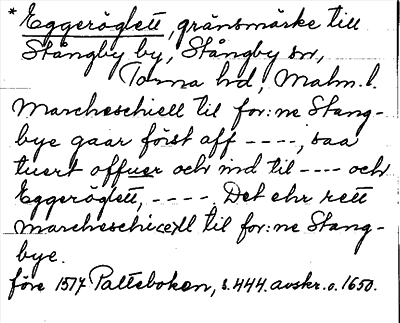 * Eggeröglett, gränsmärke till
Stångby by, Stångby sn,
Torna hd, Malm. l.
Marcheschiell til for:ne Stang-
bye gaar först aff ----, saa
tuert offuer och ind til ---- och
Eggeröglett, ----. Det ehr rett
marcheschieell til for:ne Stang-
bye.
före 1517 Palteboken, s. 444. avskr. o. 1650.